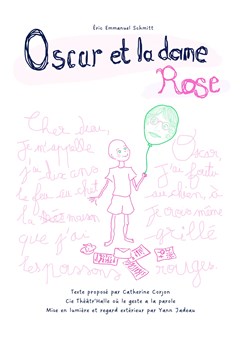 Éric Emmanuel Schmitt
Oscar et la dame
Rose
Cher dieu,
je m'appelle
j'ai dix ans
le feu au chat
la maison
que j'ai
les poissons
Oscar,
j'ai foutu
au chien, à
je crois même
grillé
rouges.
Texte proposé par Catherine Corjon
Cie Théâtr'Halle où le geste a la parole
Mise en lumière et regard extérieur par Yann Jadeau